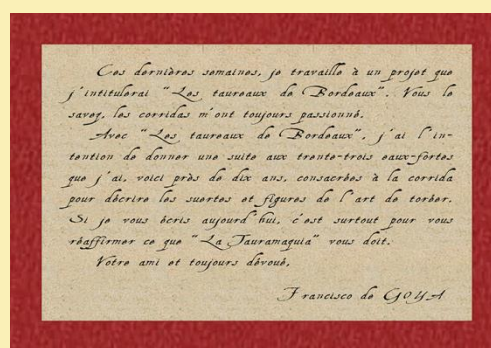 Ces dernières semaines, je travaille à un projet que
j'intitulerai "Les taureaux de Bordeaux". Vous le
savez, les corridas m'ont toujours passionné.
Avec "Les taureaux de Bordeaux", j'ai l'in-
tention de donner une suite aux trente-trois eaux-fortes
que j'ai, voici près de dix ans, consacrées à la corrida
pour décrire les suertes et figures de l'art de toréer.
Si je vous écris aujourd'hui, c'est surtout pour vous
réaffirmer ce que "La Tauramaquia" vous doit.
Votre ami et toujours dévoué,
Francisco de GOYA